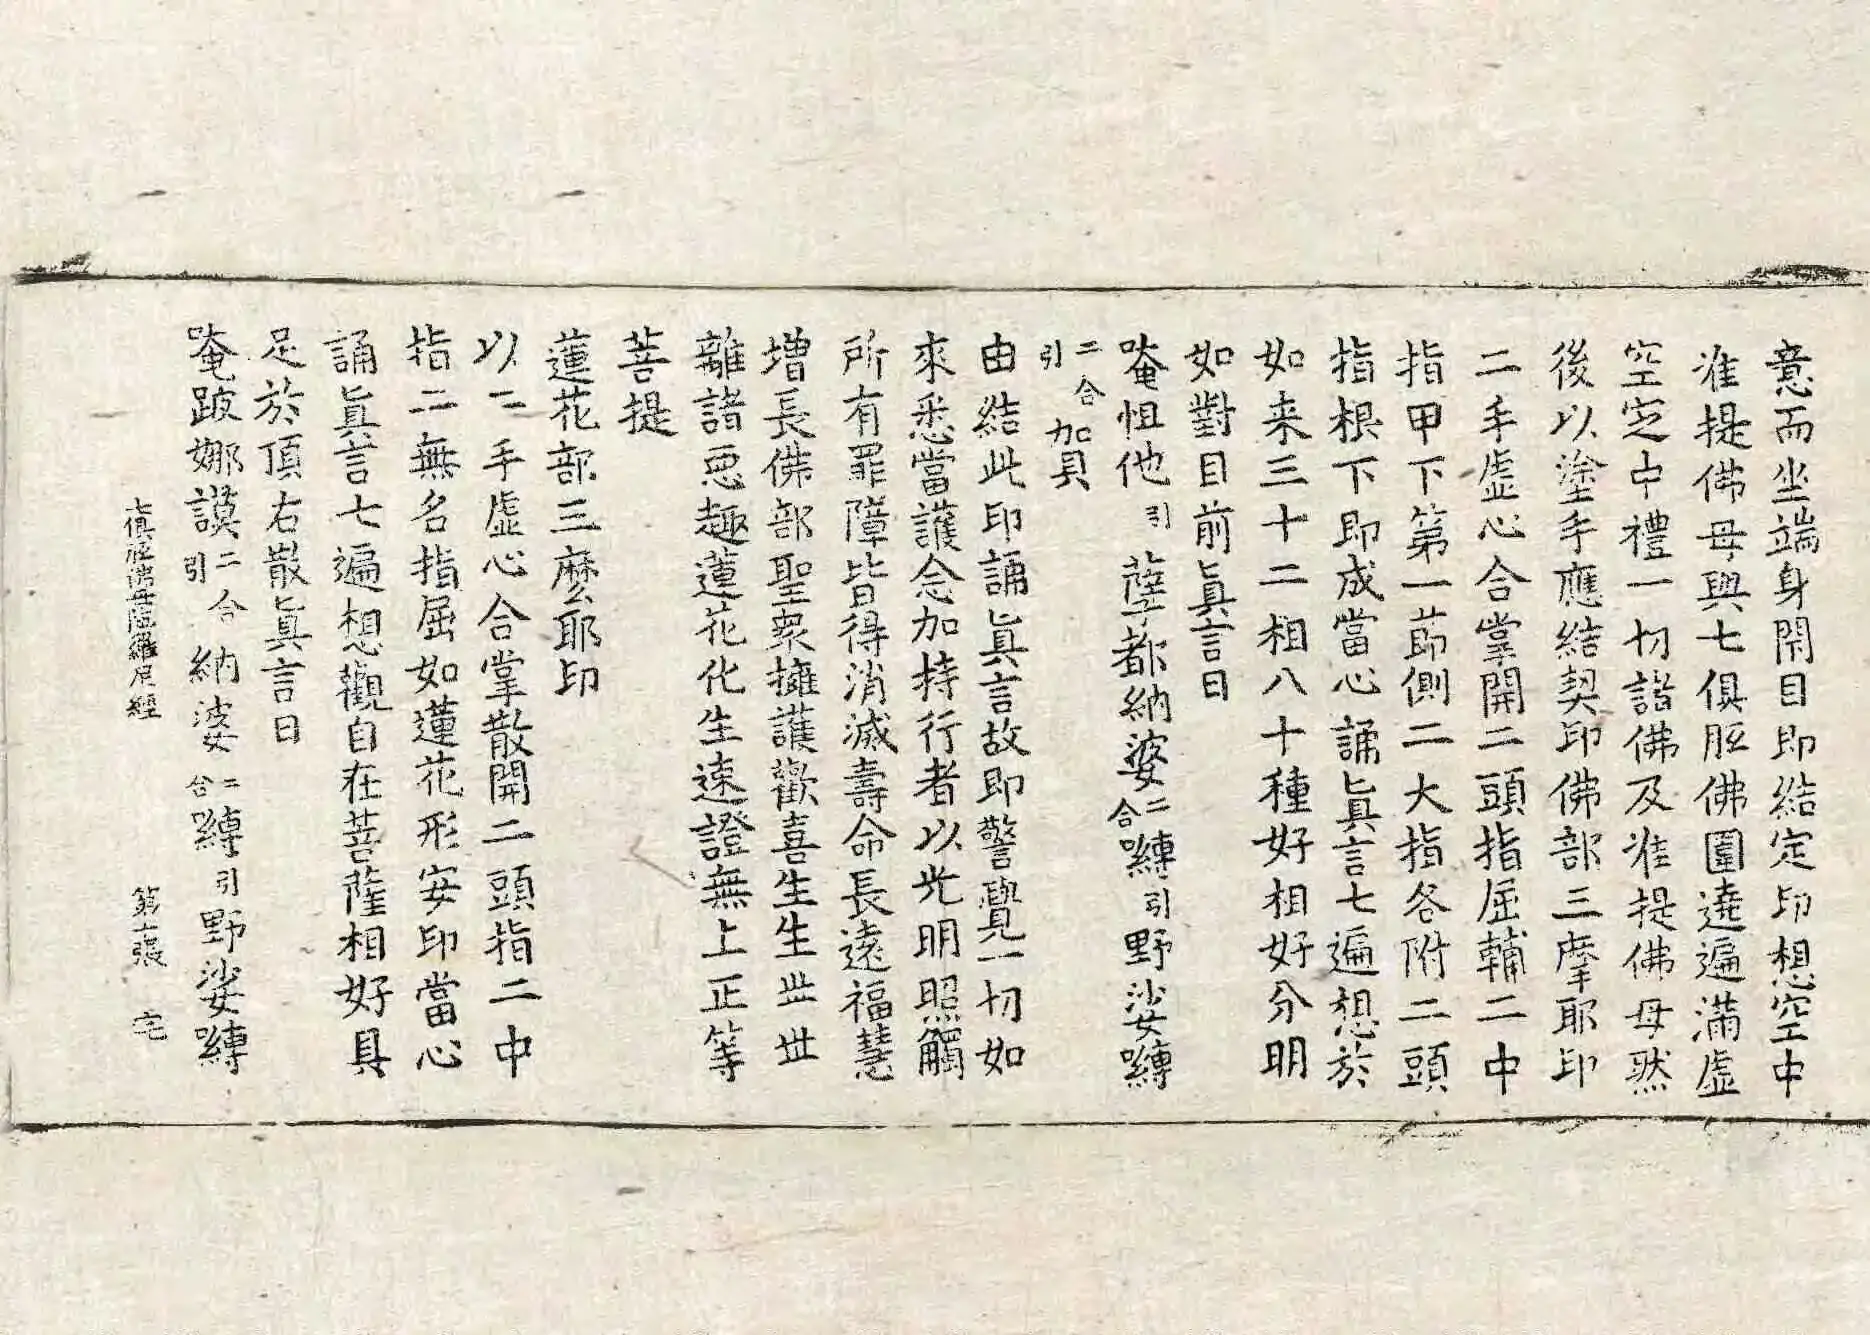 意而坐端身閉目即結定印想空中
准提佛母與七俱胝佛圍遶遍滿虛
空定中禮一切諸佛及准提佛母然
後以塗手應結契印佛部三摩耶印
二手虛心合掌開二頭指屈輔二中
指甲下第一莭側二大指各附二頭
指根下即成當心誦眞言七遍想於
如来三十二相八十種好相好分明
如對目前眞言曰
唵怛他引孽都納婆二合嚩引野娑嚩
二合引加具
由結此印誦眞言故即警覺一切如
來悉當護念加持行者以光明照觸
所有罪障皆得消滅壽命長遠福慧
增長佛部聖衆擁護歡喜生生丗丗
離諸惡趣蓮花化生速證無上正等
菩提
蓮花部三麽耶印
以二手虛心合掌散開二頭指二中
指二無名指屈如蓮花形安印當心
誦眞言七遍想觀自在菩薩相好具
足於頂右散眞言曰
唵跛娜謨二合引納婆二合嚩引野娑嚩
七俱胝佛母陁羅尼經 第 張 宅